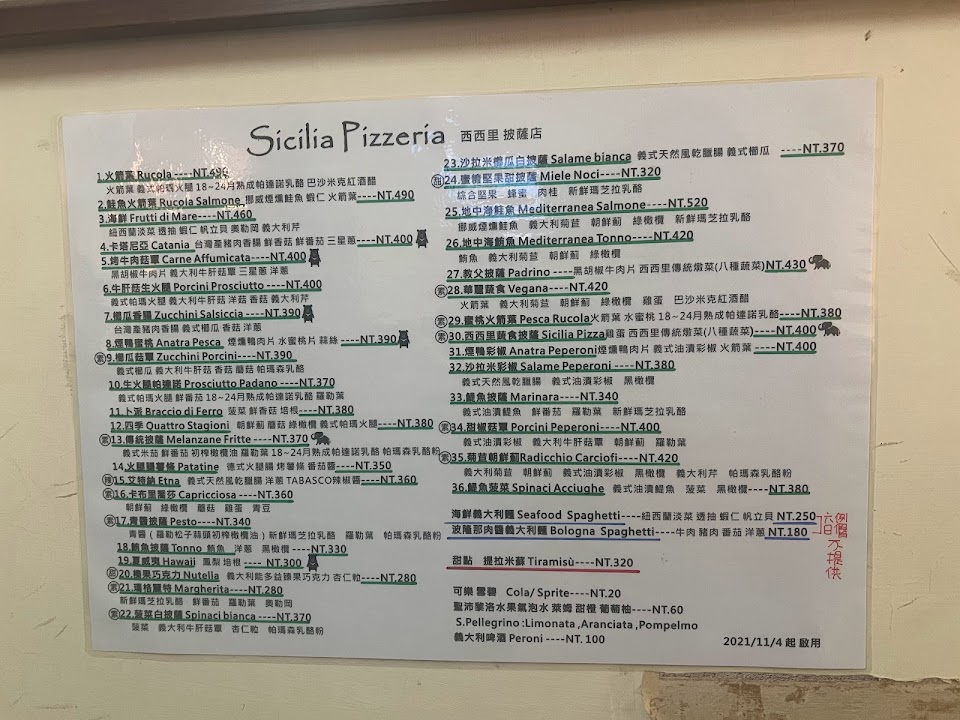 Sicilia Pizzeria 西西里 披薩店
1.火箭葉 Rucola ----NT.490
火箭葉 義式帕瑪火腿 18~24月熟成帕達諾乳酪 巴沙米克紅酒醋
2.鮭魚火箭葉 Rucola Salmone 挪威煙燻鮭魚 蝦仁 火箭葉----NT.490
3.海鮮 Frutti di Mare----NT.460
紐西蘭淡菜 透抽 蝦仁 帆立貝 奧勒岡 義大利芹
4.卡塔尼亞 Catania 台灣產豬肉香腸 鮮香菇 鮮番茄 三星蔥----NT.400
5.烤牛肉菇蕈 Carne Affumicata----NT.400
黑胡椒牛肉片 義大利牛肝菇蕈 三星蔥 洋蔥
6.牛肝菇生火腿 Porcini Prosciutto----NT.400
義式帕瑪火腿 義大利牛肝菇 洋菇 香菇 義大利芹
7.櫛瓜香腸 Zucchini Salsiccia----NT.390
台灣產豬肉香腸 義式櫛瓜 香菇 洋蔥
8.煙鴨蜜桃 Anatra Pesca 煙燻鴨肉片 水蜜桃片 蒜絲 ----NT.390
素 9.櫛瓜菇蕈 Zucchini Porcini----NT.390
義式櫛瓜 義大利牛肝菇 香菇 蘑菇 帕瑪森乳酪
10.生火腿帕達諾 Prosciutto Padano ----NT.370
義式帕瑪火腿 鮮番茄 18~24月熟成帕達諾乳酪 羅勒葉
11.卜派 Braccio di Ferro 菠菜 鮮香菇 培根----NT.380
12.四季 Quattro Stagioni 朝鮮薊 蘑菇 綠橄欖 義式帕瑪火腿----NT.380
素 13.傳統披薩 Melanzane Fritte ----NT.370
義式米茄 鮮番茄 初榨橄欖油 羅勒葉 18~24月熟成帕達諾乳酪 帕瑪森乳酪粉
14.火腿腸薯條 Patatine 德式火腿腸 烤薯條 番茄醬----NT.350
辣 15.艾特納 Etna 義式天然風乾臘腸 洋蔥 TABASCO辣椒醬----NT.360
素 16.卡布里喬莎 Capricciosa ----NT.360
朝鮮薊 綠橄欖 蘑菇 雞蛋 青豆
素 17.青醬披薩 Pesto----NT.340
青醬（羅勒松子蒜頭初榨橄欖油）新鮮瑪芝拉乳酪 羅勒葉 帕瑪森乳酪粉
18.鮪魚披薩 Tonno 鮪魚 洋蔥 黑橄欖 ----NT.330
19.夏威夷 Hawaii 鳳梨 培根 ---- NT.300
甜 20.榛果巧克力 Nutella 義大利能多益臻果巧克力 杏仁粒----NT.280
素 21.瑪格麗特 Margherita----NT.280
新鮮瑪芝拉乳酪 鮮番茄 羅勒葉 奧勒岡
素 22.菠菜白披薩 Spinaci bianca ----NT.370
菠菜 義大利牛肝菇蕈 杏仁粒 帕瑪森乳酪粉
23.沙拉米櫛瓜白披薩 Salame bianca 義式天然風乾臘腸 義式櫛瓜 ----NT.370
甜 24.蜜糖堅果甜披薩 Miele Noci----NT.320
綜合堅果 蜂蜜 肉桂 新鮮瑪芝拉乳酪
25.地中海鮭魚 Mediterranea Salmone----NT.520
挪威煙燻鮭魚 義大利菊苣 朝鮮薊 綠橄欖 新鮮瑪芝拉乳酪
26.地中海鮪魚 Mediterranea Tonno----NT.420
鮪魚 義大利菊苣 朝鮮薊 綠橄欖
27.教父披薩 Padrino ----黑胡椒牛肉片 西西里傳統燉菜(八種蔬菜)NT.430
素 28.華麗蔬食 Vegana----NT.420
火箭葉 義大利菊苣 朝鮮薊 綠橄欖 雞蛋 巴沙米克紅酒醋
素 29.蜜桃火箭葉 Pesca Rucola火箭葉 水蜜桃 18~24月熟成帕達諾乳酪----NT.380
素 30.西西里蔬食披薩 Sicilia Pizza雞蛋 西西里傳統燉菜(八種蔬菜)----NT.400
31.煙鴨彩椒 Anatra Peperoni煙燻鴨肉片 義式油漬彩椒 火箭葉 ----NT.400
32.沙拉米彩椒 Salame Peperoni ----NT.380
義式天然風乾臘腸 義式油漬彩椒 黑橄欖
33.鯷魚披薩 Marinara----NT.340
義式油漬鯷魚 鮮番茄 羅勒葉 新鮮瑪芝拉乳酪
素 34.甜椒菇蕈 Porcini Peperoni ----NT.400
義式油漬彩椒 義大利牛肝菇蕈 朝鮮薊 羅勒葉
素 35.菊苣朝鮮薊Radicchio Carciofi----NT.420
義大利菊苣 朝鮮薊 義式油漬彩椒 黑橄欖 義大利芹 帕瑪森乳酪粉
36.鯷魚菠菜 Spinaci Acciughe 義式油漬鯷魚 菠菜 黑橄欖----NT.380
海鮮義大利麵 Seafood Spaghetti----紐西蘭淡菜 透抽 蝦仁 帆立貝 NT.250
波隆那肉醬義大利麵 Bologna Spaghetti----牛肉 豬肉 番茄 洋蔥 NT.180
例假
六日不提供
甜點 提拉米蘇 Tiramisù----NT.320
可樂 雪碧 Cola/ Sprite----NT.20
聖沛黎洛水果氣泡水 萊姆 甜橙 葡萄柚----NT.60
S.Pellegrino :Limonata ,Aranciata ,Pompelmo
義大利啤酒 Peroni ----NT. 100
2021/11/4 起 啟用